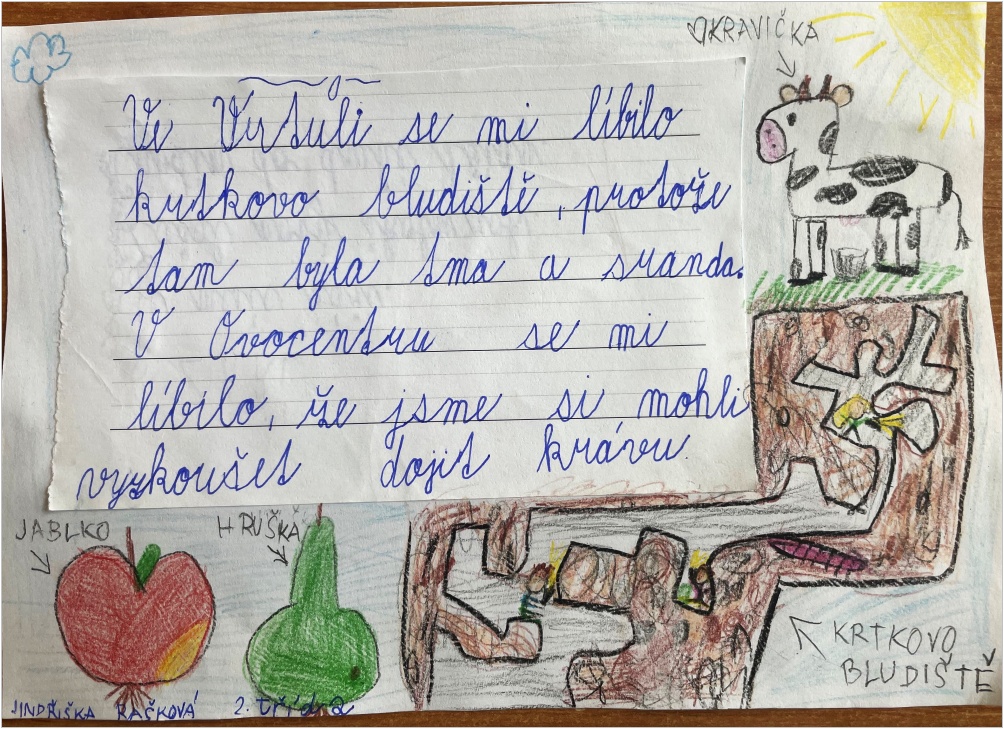 KRAVIČKA
Ve Vršuli se mi líbilo
krtkovo bludiště, protože
tam byla tma a sranda.
V Ovocentru se mi
líbilo, že jsme si mohli
vyzkoušet dojit krávu.
JABLKO
HRUŠKA
KRTKOVO
BLUDIŠTĚ
JINDŘIŠKA RAČKOVÁ 2. třída